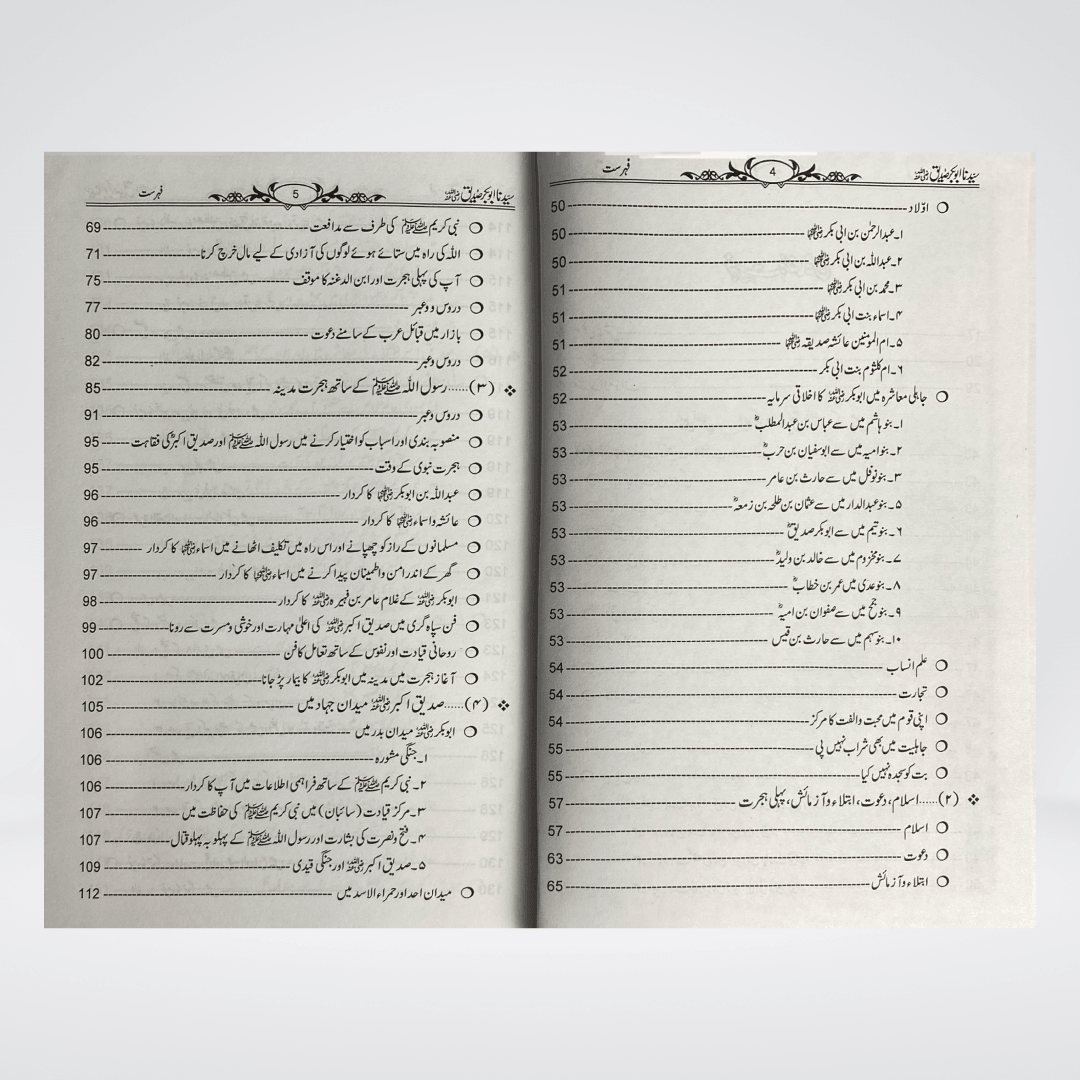 سیدنا ابوبکر صدیق رضی اللہ عنہ 4 فہرست
اولاد 50
۱۔عبدالرحمٰن بن ابی بکر رضی اللہ عنہما 50
۲۔عبداللہ بن ابی بکر رضی اللہ عنہما 50
۳۔محمد بن ابی بکر رضی اللہ عنہما 51
۴۔اسماء بنت ابی بکر رضی اللہ عنہما 51
۵۔ام المومنین عائشہ صدیقہ رضی اللہ عنہا 51
۶۔ام کلثوم بنت ابی بکر 52
جاہلی معاشرہ میں ابوبکر رضی اللہ عنہ کا اخلاقی سرمایہ 52
۱۔بنو ہاشم میں سے عباس بن عبدالمطلبؓ 53
۲۔بنوامیہ میں سے ابوسفیان بن حربؓ 53
۳۔بنونوفل میں سے حارث بن عامر 53
۵۔بنوعبدالدار میں سے عثمان بن طلحہ بن زمعہؓ 53
۶۔بنوتیم میں سے ابوبکر صدیقؓ 53
۷۔بنومخزوم میں سے خالد بن ولیدؓ 53
۸۔بنوعدی میں عمر بن خطابؓ 53
۹۔بنو جمح میں سے صفوان بن امیہؓ 53
۱۰۔بنوسہم میں سے حارث بن قیس 53
علم انساب 54
تجارت 54
اپنی قوم میں محبت والفت کا مرکز 54
جاہلیت میں بھی شراب نہیں پی 55
بت کو سجدہ نہیں کیا 55
(۲)......اسلام، دعوت، ابتلاء و آزمائش، پہلی ہجرت 57
اسلام 57
دعوت 63
ابتلاء و آزمائش 65
سیدنا ابوبکر صدیق رضی اللہ عنہ 5 فہرست
نبی کریم ﷺ کی طرف سے مدافعت 69
اللہ کی راہ میں ستائے ہوئے لوگوں کی آزادی کے لیے مال خرچ کرنا 71
آپ کی پہلی ہجرت اور ابن الدغنہ کا موقف 75
دروس و وعبر 77
بازار میں قبائل عرب کے سامنے دعوت 80
دروس وعبر 82
(۳)......رسول اللہ ﷺ کے ساتھ ہجرت مدینہ 85
دروس وعبر 91
منصوبہ بندی اور اسباب کو اختیار کرنے میں رسول اللہ ﷺ اور صدیق اکبرؓ کی فقاہت 95
ہجرت نبوی کے وقت 95
عبداللہ بن ابوبکر رضی اللہ عنہما کا کردار 96
عائشہ واسماء رضی اللہ عنہما کا کردار 96
مسلمانوں کے راز کو چھپانے اور اس راہ میں تکلیف اٹھانے میں اسماء رضی اللہ عنہا کا کردار 97
گھر کے اندر امن و اطمینان پیدا کرنے میں اسماء رضی اللہ عنہا کا کردار 97
ابوبکر رضی اللہ عنہ کے غلام عامر بن فہیرہ رضی اللہ عنہ کا کردار 98
فن سپاہ گری میں صدیق اکبر رضی اللہ عنہ کی اعلیٰ مہارت اور خوشی و مسرت سے رونا 99
روحانی قیادت اور نفوس کے ساتھ تعامل کا فن 100
آغاز ہجرت میں مدینہ میں ابوبکر رضی اللہ عنہ کا بیمار پڑ جانا 102
(۴)......صدیق اکبر رضی اللہ عنہ میدان جہاد میں 105
ابوبکر رضی اللہ عنہ میدان بدر میں 106
۱۔جنگی مشورہ 106
۲۔نبی کریم ﷺ کے ساتھ فراہمی اطلاعات میں آپ کا کردار 106
۳۔مرکز قیادت (سائبان) میں نبی کریم ﷺ کی حفاظت میں 107
۴۔فتح ونصرت کی بشارت اور رسول اللہ ﷺ کے پہلو بہ پہلو قتال 107
۵۔صدیق اکبر رضی اللہ عنہ اور جنگی قیدی 109
میدان احد اور حمراء الاسد میں 112